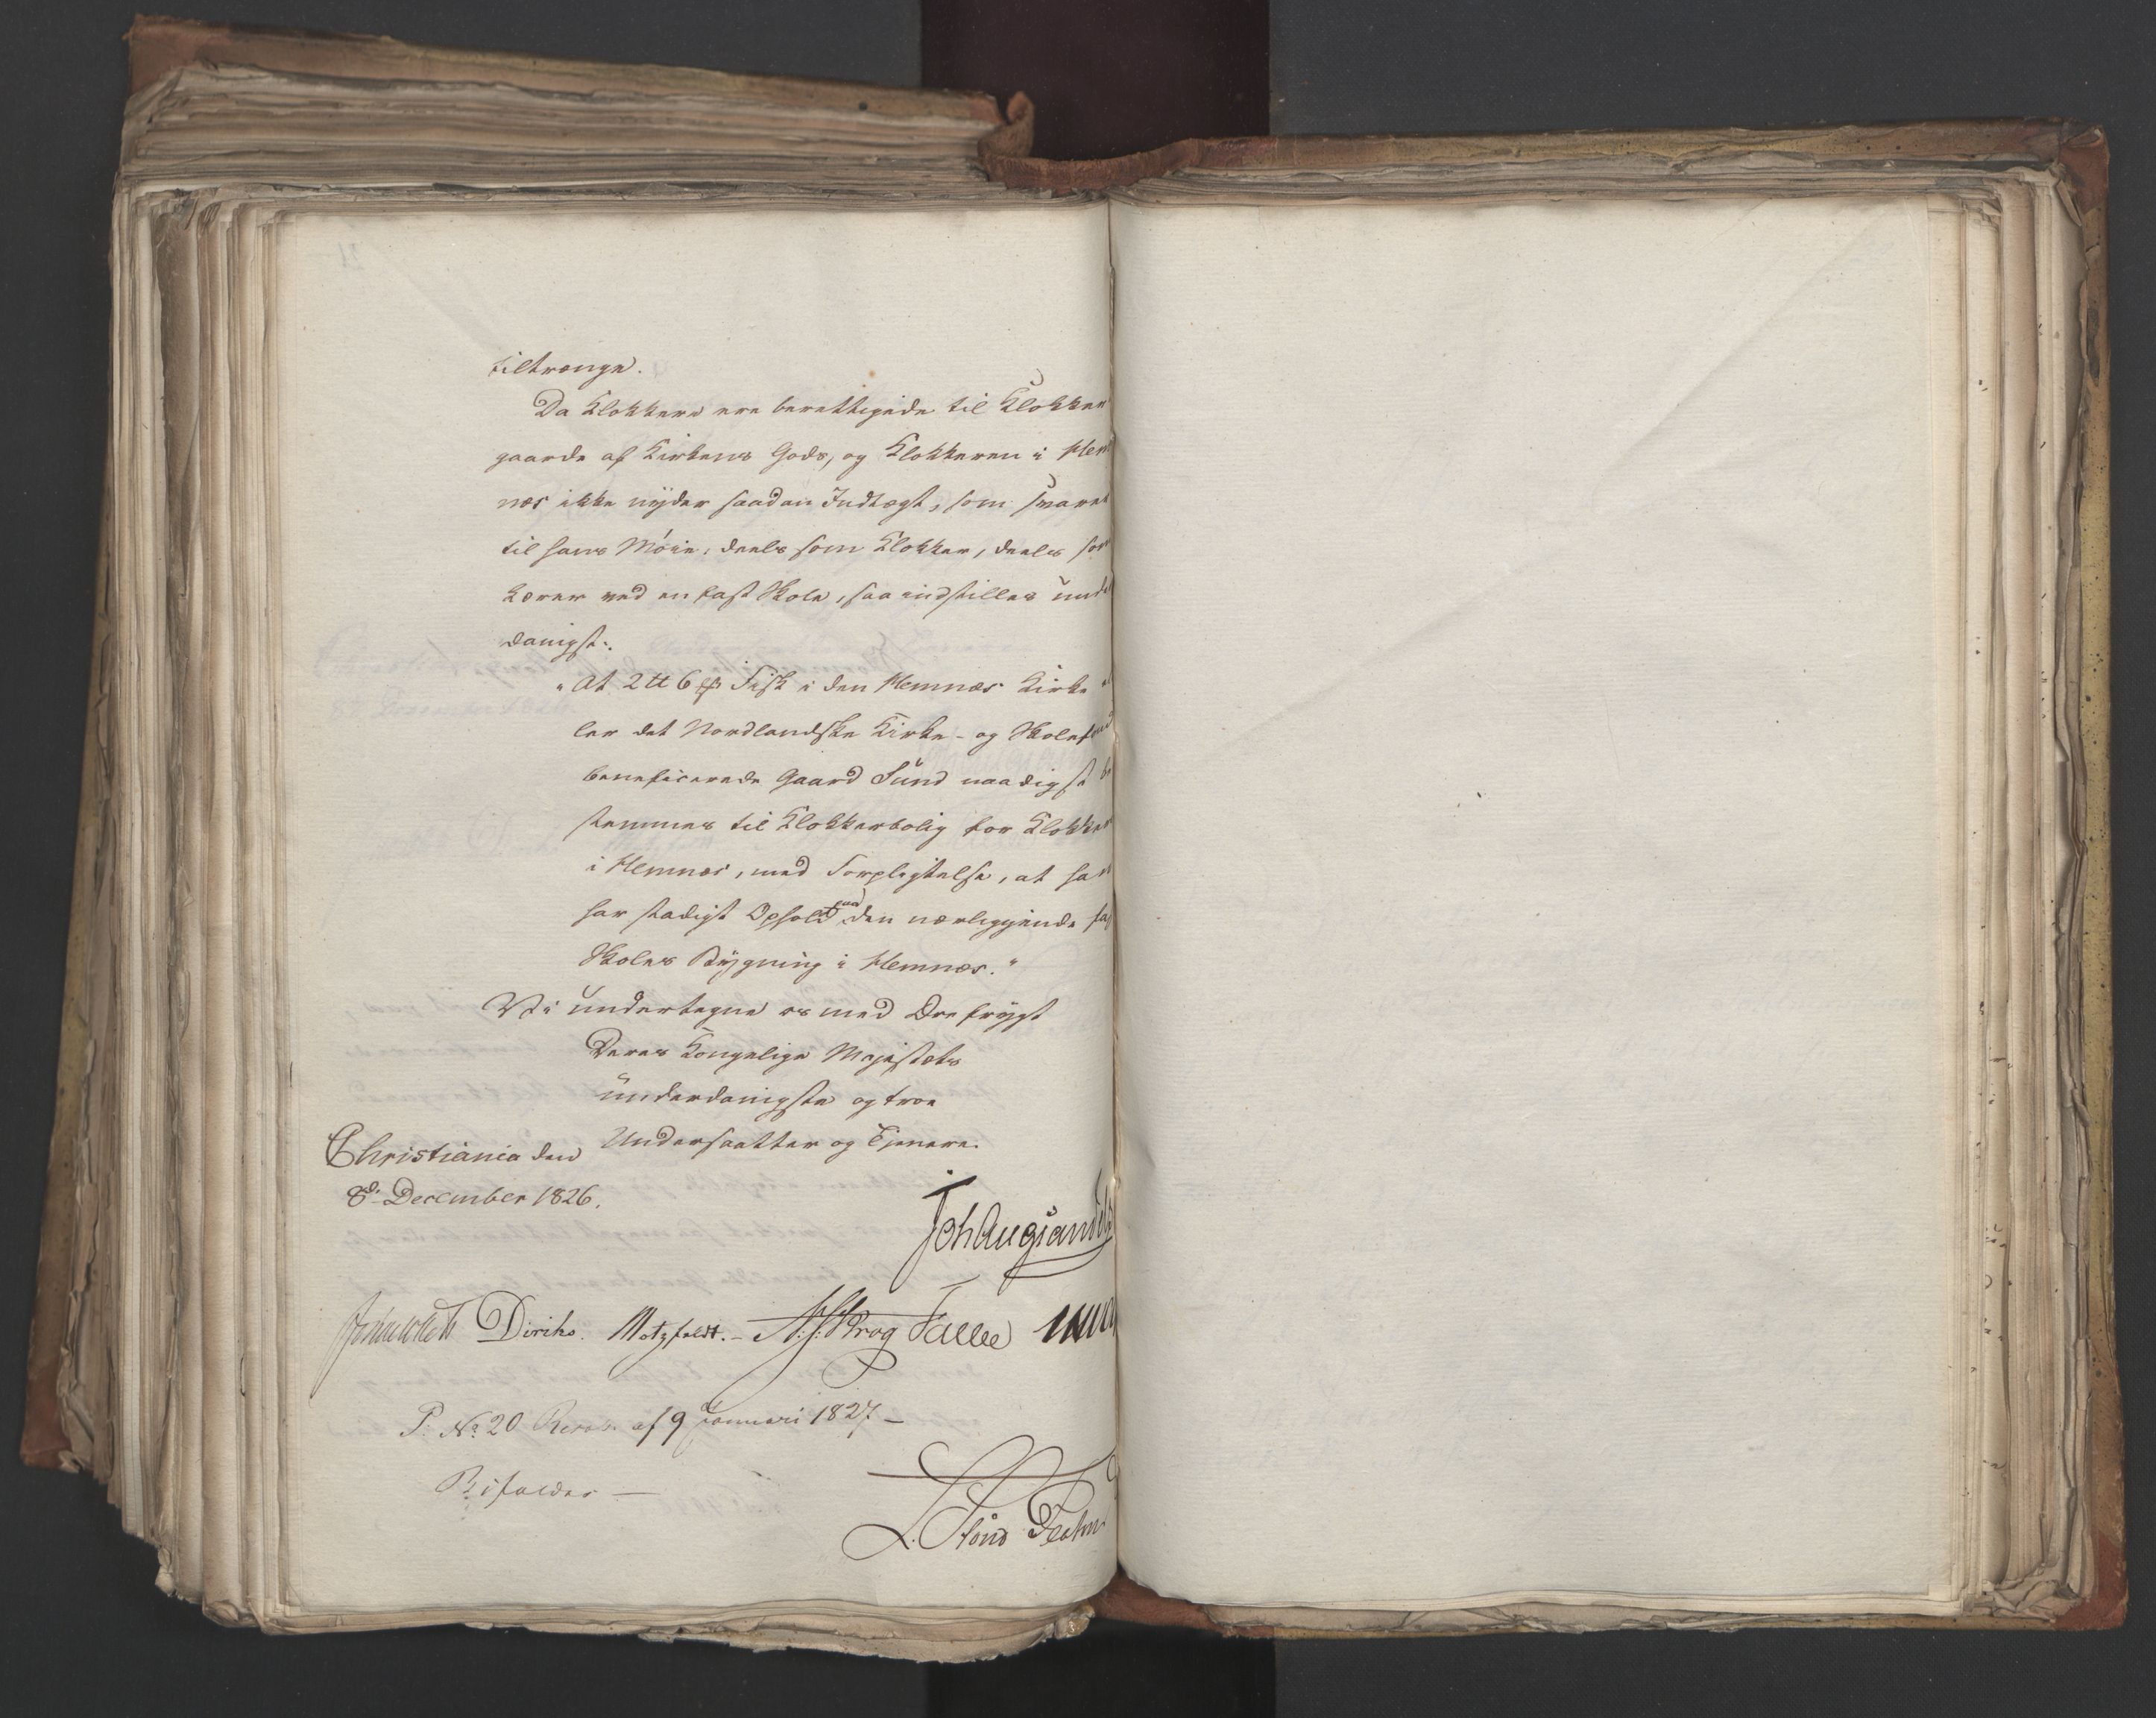 tiltrænge.
Da Klokkere ere berettigede til Klokker
gaarde af Kirkens Gods, og Klokkeren i Hem
næs ikke nyder saadan Indtægt, som svarer
til hans Møie, deels som Klokker, deels som
Lærer ved en fast Skole, saa indstilles unde
danigst:
"At 2 tt 6 Fisk i den Hemnæs Kirke el
ler det Nordlandske Kirke- og Skolefond
beneficerede Gaard Sund naadigst be
stemmes til Klokkerbolig for Klokker
i Hemnæs, med Forpligtelse, at han
har stadigt Ophold paa den nærliggende fa
Skoles Bygning i Hemnæs."
Vi undertegne os med Ærefrygt
Deres Kongelige Majestæts
underdanigste og troe
Undersaatter og Tjenere.
Christiania den
8de December 1826.
Joh Aug Sandels
Diriks. Motzfeldt. Krog Falbe
P: No 20 Resol. af 9 Januari 1827 –
Bifaldes —